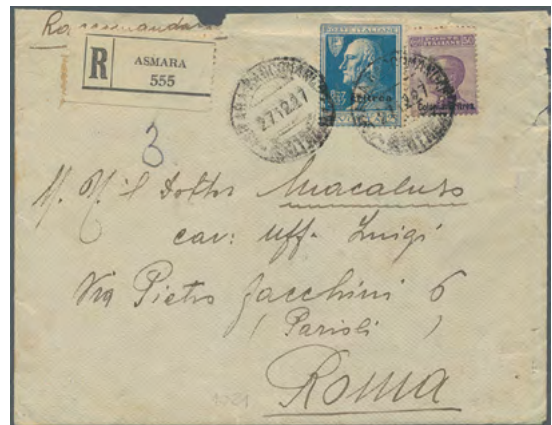 Raccomandata
R
ASMARA
555
27.12.27
POSTE ITALIANE
Eritrea
3
Il Dottor Macaluso
cav: Uff. Luigi
Via Pietro Jacchini 6
( Parioli )
Roma
1021